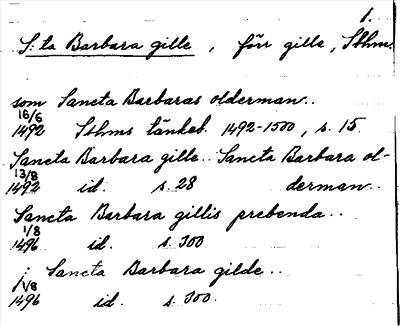 1.
S:ta Barbara gille, förr gille, Sthm.
som Sancta Barbaras olderman..
16/6
1492 Sthms tänkeb. 1492-1500, s. 15.
Sancta Barbara gille.. Sancta Barbara ol-
13/8
1492 id. s. 28 derman..
Sancta Barbara gillis prebenda..
1/8
1496 id. s. 300
i Sancta Barbara gilde..
1/8
1496 id. s. 300.